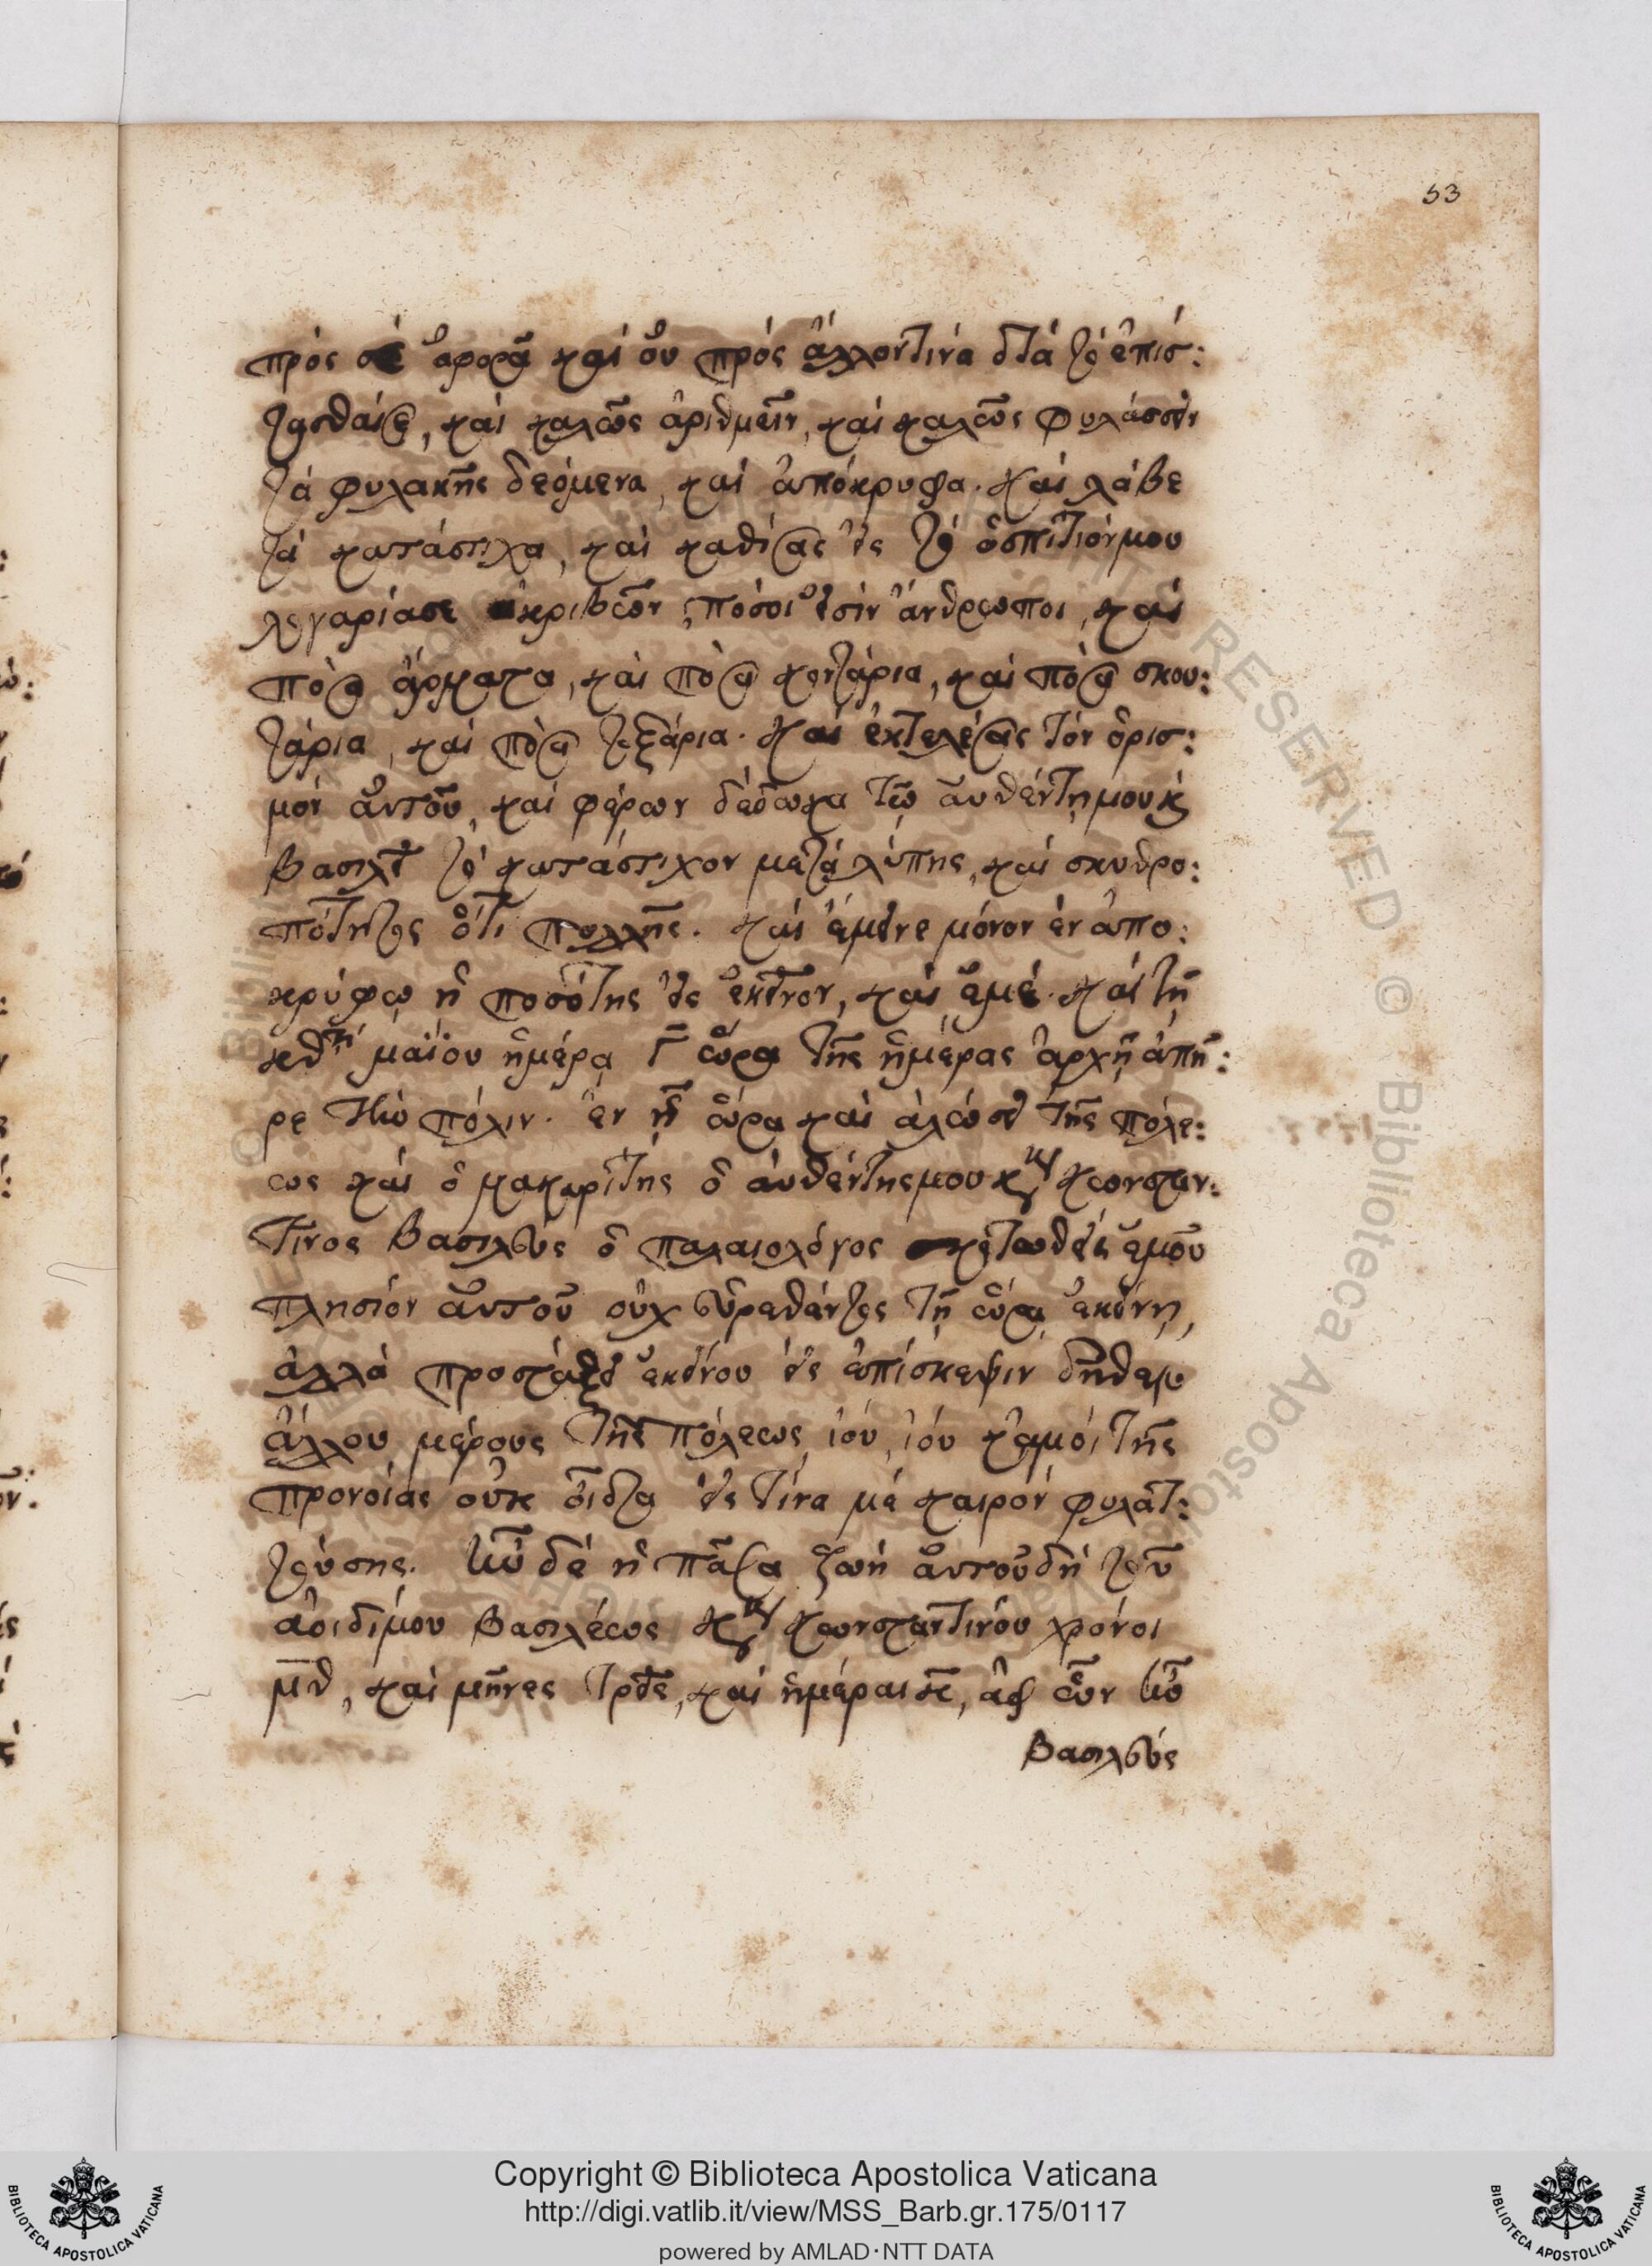 53
πρὸς σὲ ἀφορᾷ καὶ οὐ πρὸς ἄλλον τινὰ διὰ τὸ ἐπίσ:
τασθαί σε, καὶ καλῶς ἀριθμεῖν, καὶ καλῶς φυλάσσειν
τὰ φυλακῆς δεόμενα, καὶ ἀπόκρυφα. καὶ λάβε
τὰ κατάστιχα, καὶ καθίσας εἰς τὸ ὀσπίτιόν μου
λογαρίασε ἀκριβῶν, πόσοι εἰσὶν ἄνθρωποι, καὶ
πόσα ἄρματα, καὶ πόσα κοντάρια, καὶ πόσα σκου:
τάρια, καὶ πόσα τοξάρια. καὶ ἐκτελέσας τὸν ὁρισ:
μὸν αὐτοῦ, καὶ φέρων δέδωκα τῷ αὐθέντῃ μου κ
βασιλεῖ τὸ κατάστιχον μετὰ λύπης, καὶ σκυθρο:
πότητος ὅτι πολλῆς. καὶ ἔμεινε μόνον ἐν ἀπο:
κρύφῳ ἡ ποσότης εἰς ἐκεῖνον, καὶ ἐμέ. καὶ τῇ
κθῃ μαΐου ἡμέρᾳ Γ ὥρᾳ τῆς ἡμέρας ἀρχῇ ἀπῆ:
ρε τὴν πόλιν. ἐν ᾗ ὥρᾳ καὶ ἁλώσει τῆς πόλε:
ως καὶ ὁ μακαρίτης ὁ αὐθέντης μου κυρ κωνσταν:
τῖνος βασιλεὺς ὁ παλαιολόγος σκοτωθεὶς ἐμοῦ
πλησίον αὐτοῦ οὐχ εὑρεθέντος τῇ ὥρᾳ ἐκείνῃ,
ἀλλὰ προστάξει ἐκείνου εἰς ἐπίσκεψιν δῆθεν
ἄλλου μέρους τῆς πόλεως, ἰοὺ, ἰοὺ κᾀμοὶ τῆς
προνοίας οὐκ οἶδα εἰς τίνα με καιρὸν φυλατ:
τούσης. ἦν δὲ ἡ πᾶσα ζωὴ αὐτοῦ δὴ τοῦ
ἀοιδίμου βασιλέως κυρ κωνσταντίνου χρόνοι
μθ, καὶ μῆνες τρεῖς, καὶ ἡμέραι κ, ἀφ ὧν ἦν
βασιλεὺς
Copyright © Biblioteca Apostolica Vaticana
http://digi.vatlib.it/view/MSS_Barb.gr.175/0117
powered by AMLAD·NTT DATA